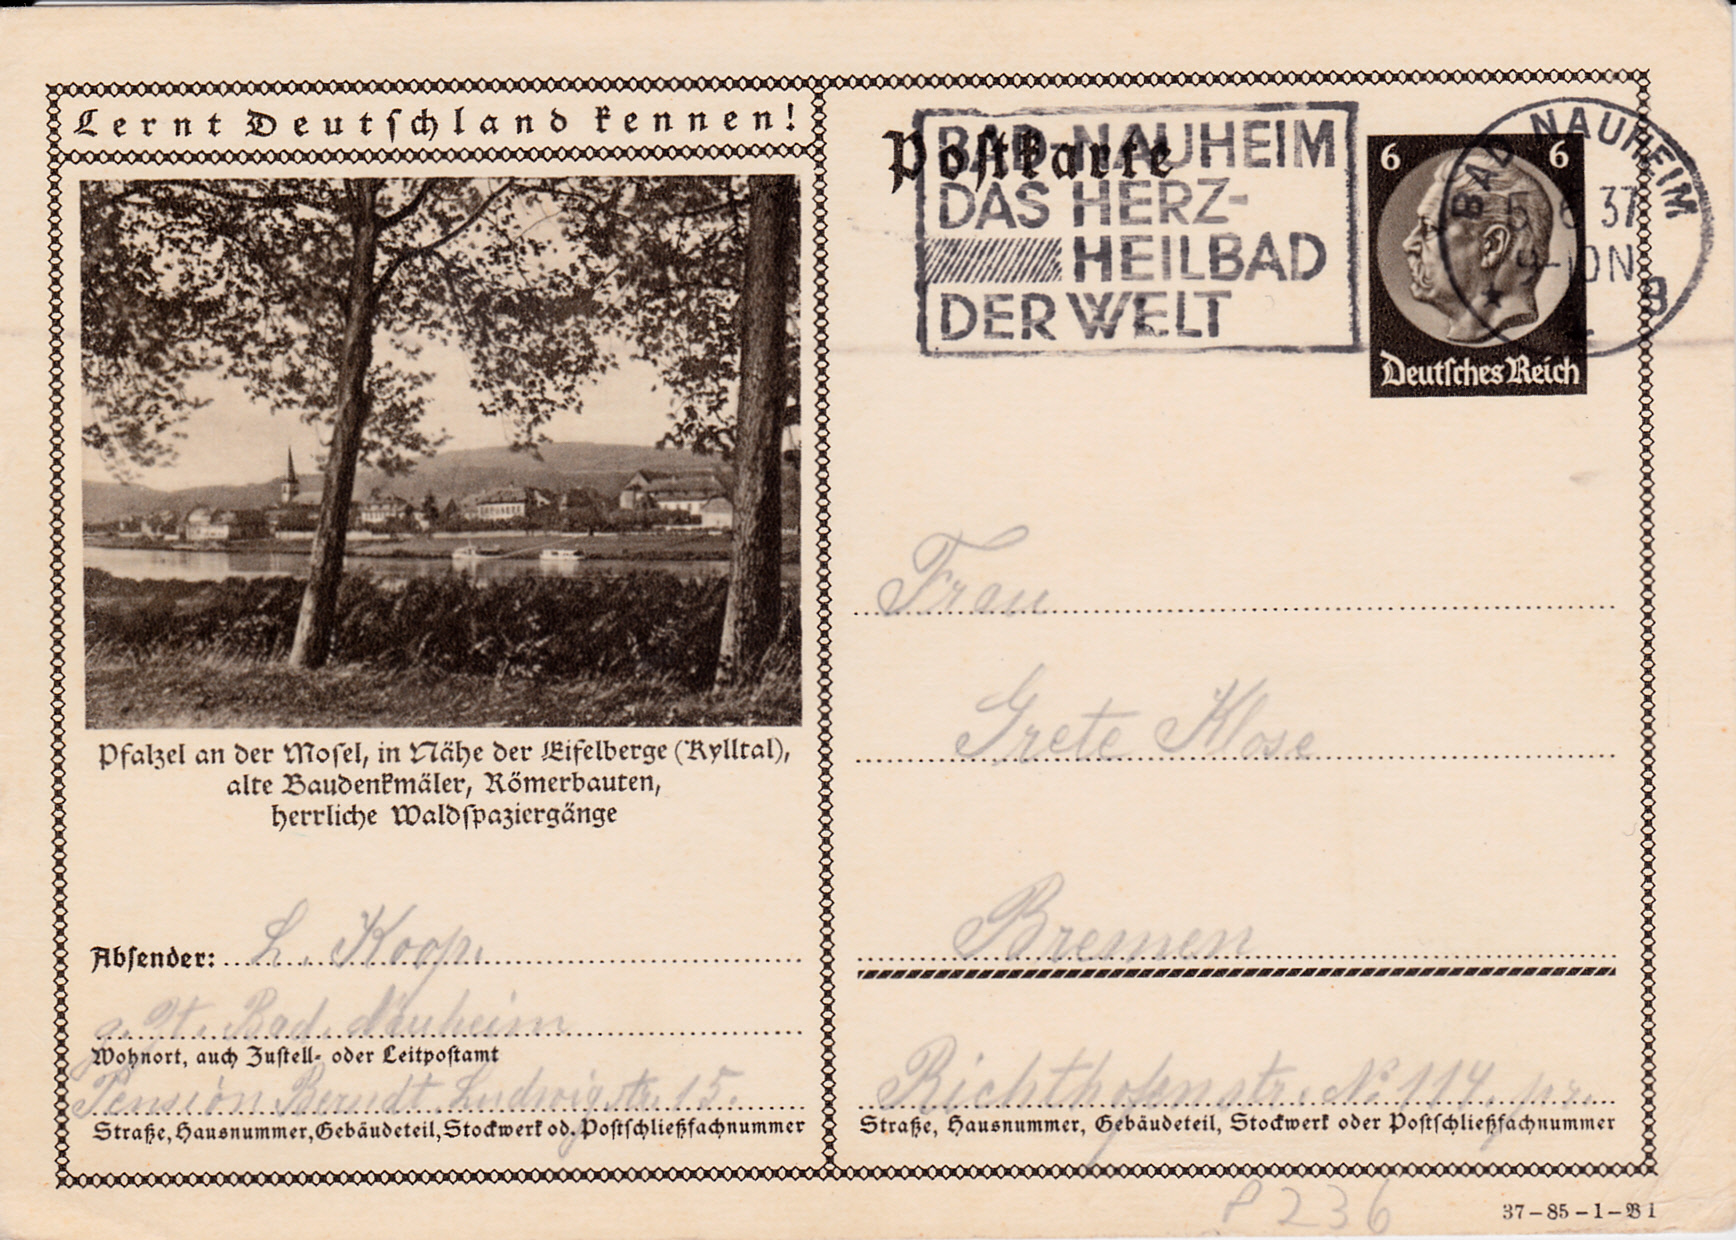 Lernt Deutschland kennen!
Pfalzel an der Mosel, in Nähe der Eifelberge (Kylltal),
alte Baudenkmäler, Römerbauten,
herrliche Waldspaziergänge
Absender: L. Koop.
z. Zt. Bad. Nauheim
Wohnort, auch Zustell- oder Leitpostamt
Pension Berndt Ludwigstr. 15.
Straße, Hausnummer, Gebäudeteil, Stockwerk od. Postschließfachnummer
Postkarte
BAD-NAUHEIM
DAS HERZ-
HEILBAD
DER WELT
6 6
Deutsches Reich
BAD NAUHEIM
37
B
Frau
Grete Klose
Bremen
Richthofenstr. No 114. pr.
Straße, Hausnummer, Gebäudeteil, Stockwerk oder Postschließfachnummer
P 236
37-85-1-B 1